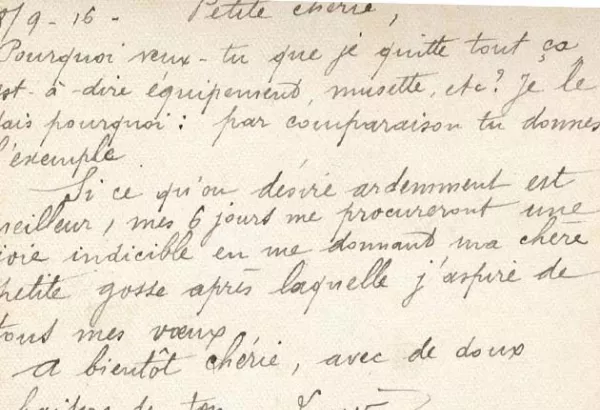 8/9-16- Petite chérie,
Pourquoi veux-tu que je quitte tout ça
est-à-dire équipement, musette, etc? Je le
sais pourquoi: par comparaison tu donnes
l'exemple
Si ce qu'on désire ardemment est
meilleur, mes 6 jours me procureront une
joie indicible en me donnant ma chère
petite gosse après laquelle j'aspire de
tous mes vœux
A bientôt chérie, avec de doux
baisers de ton